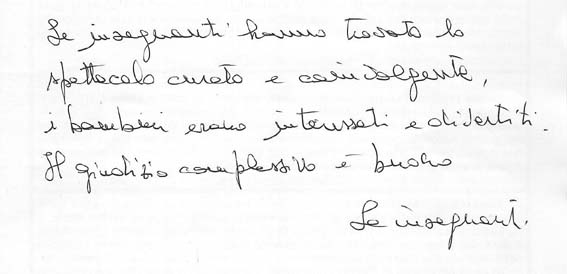 Le insegnanti hanno trovato lo
spettacolo curato e coinvolgente,
i bambini erano interessati e divertiti.
Il giudizio complessivo è buono
Le insegnanti.